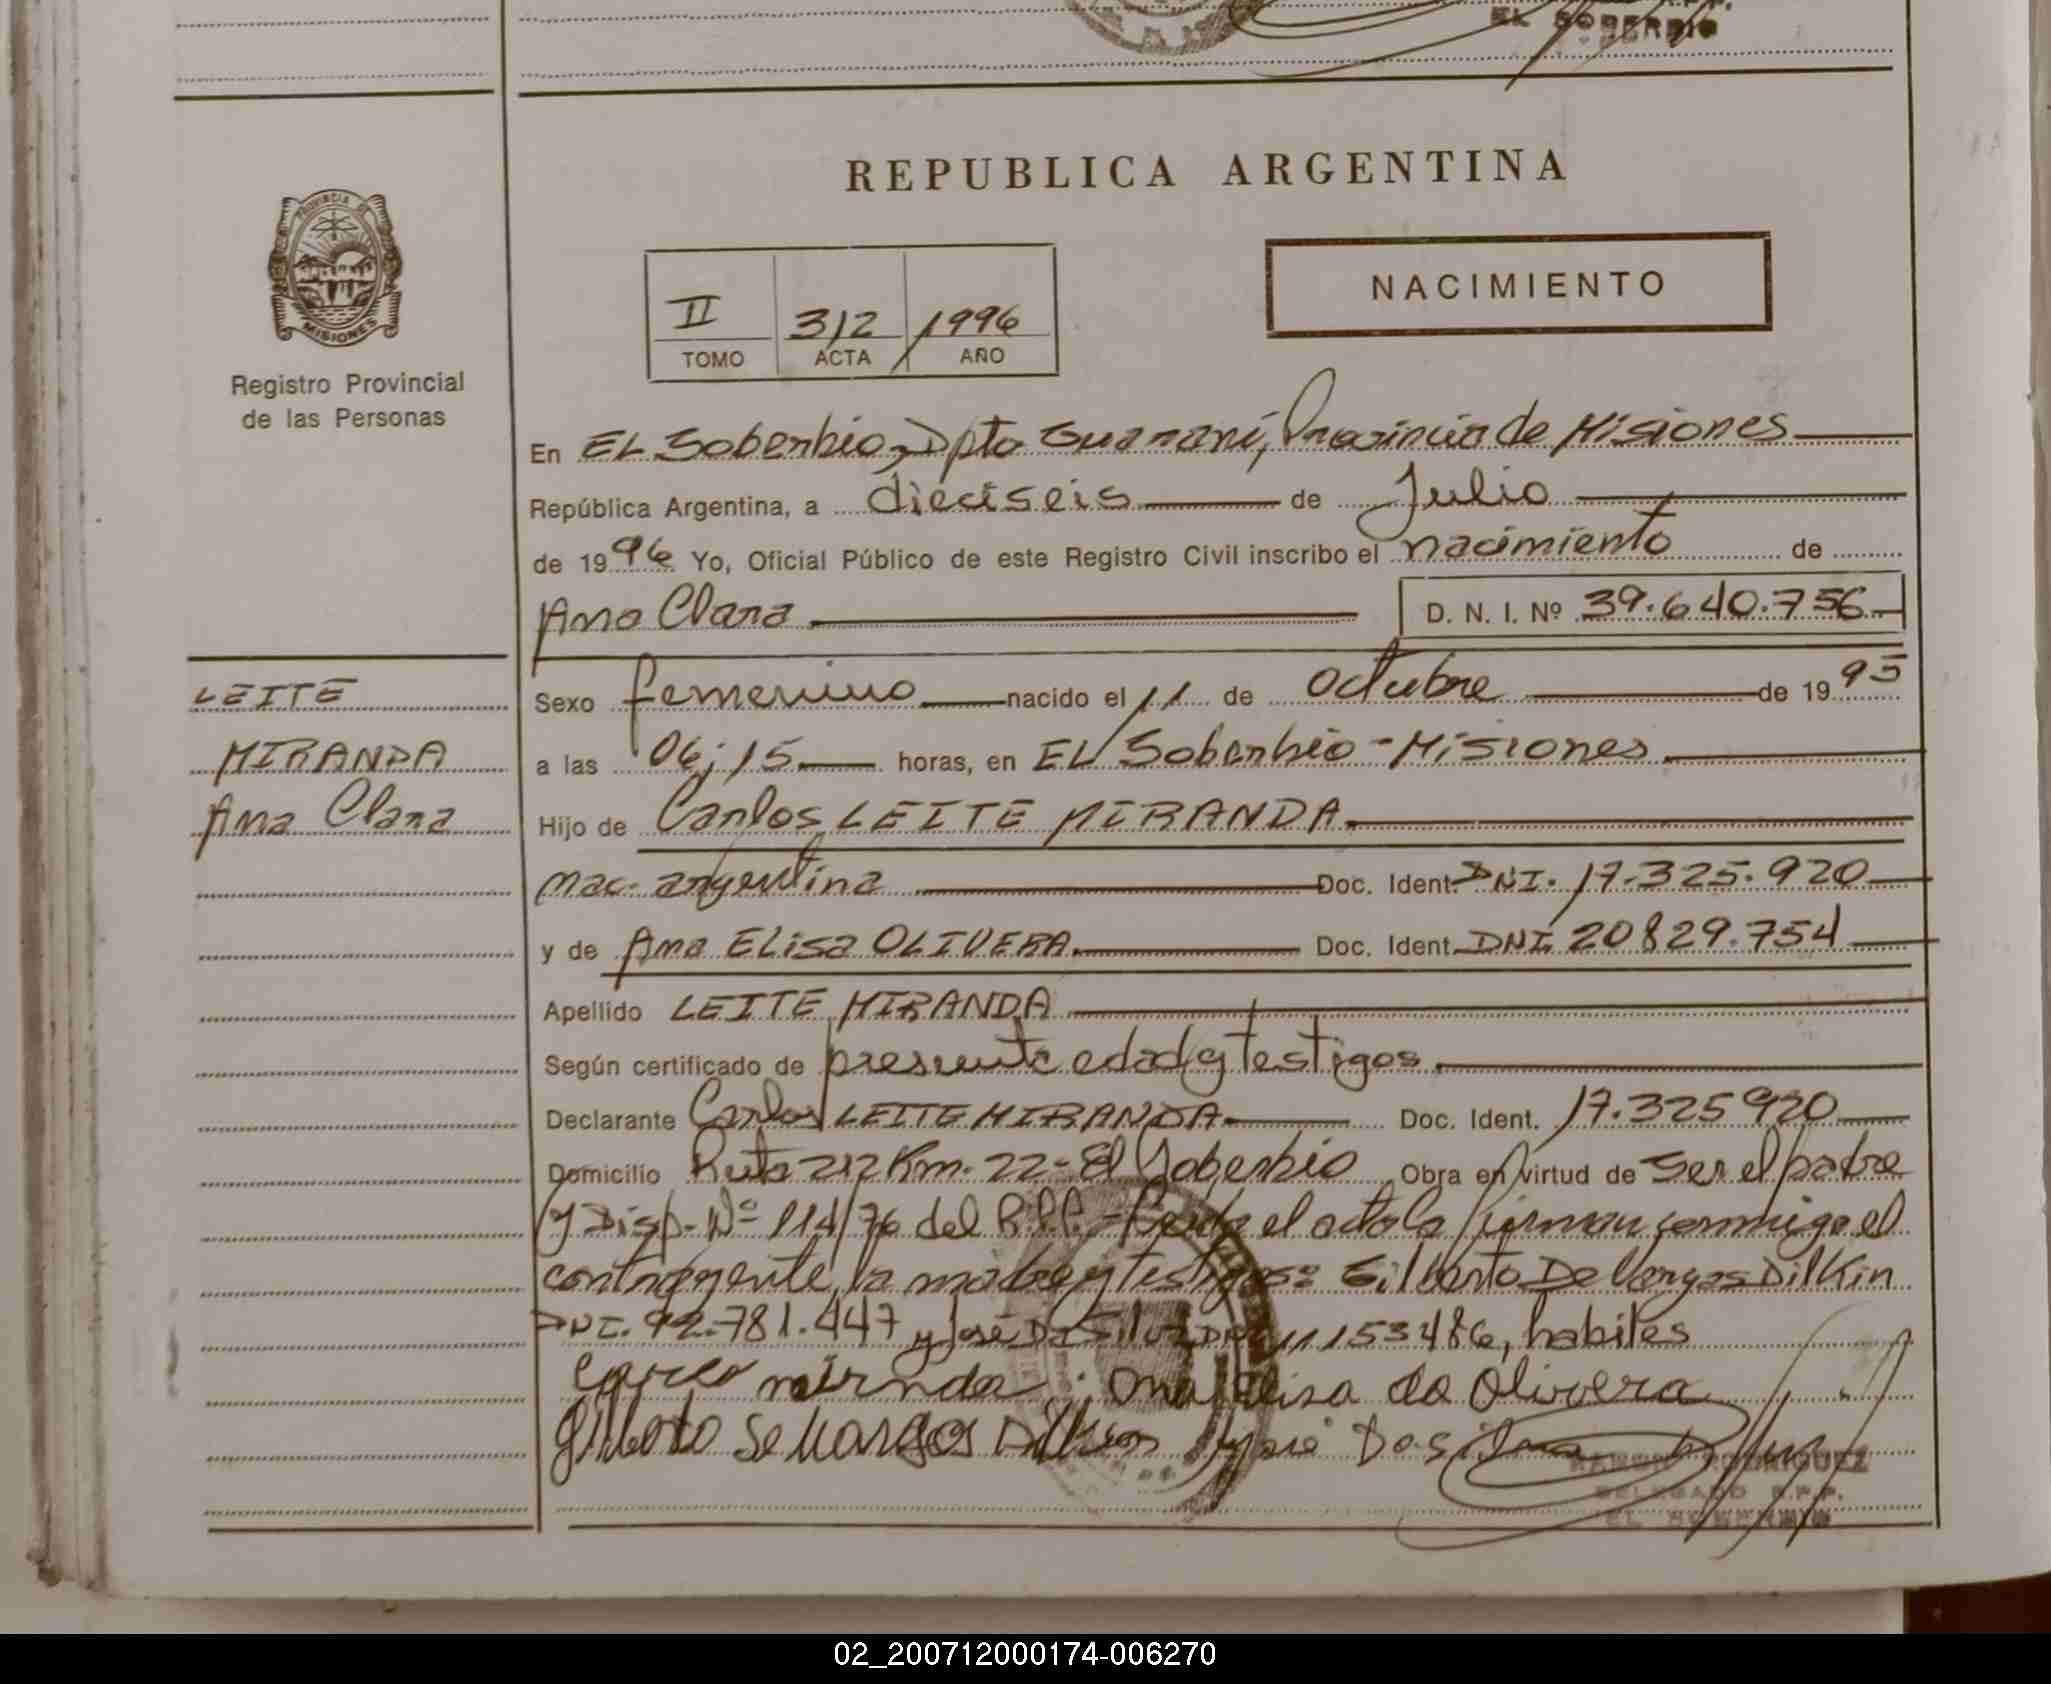 EL SOBERBIO
REPUBLICA ARGENTINA
PROVINCIA DE
MISIONES
Registro Provincial
de las Personas
NACIMIENTO
II 312 1996
TOMO ACTA AÑO
En EL Soberbio, Dpto Guarani, Provincia de Misiones
República Argentina, a dieciseis de Julio
de 1996 Yo, Oficial Público de este Registro Civil inscribo el nacimiento de
Ana Clara D. N. I. Nº 39.640.756
LEITE
MIRANDA
Ana Clara
Sexo femenino nacido el 11 de octubre de 1995
a las 06;15 horas, en EL Soberbio - Misiones
Hijo de Carlos LEITE MIRANDA
nac. argentina Doc. Ident. DNI. 17.325.920
y de Ana ELisa OLIVERA Doc. Ident. DNI. 20829.754
Apellido LEITE MIRANDA
Según certificado de presunta edad y testigos
Declarante Carlos LEITE MIRANDA Doc. Ident. 17.325920
Domicilio Ruta 212 Km. 22 - El Soberbio Obra en virtud de ser el padre
y Disp. Nº 114/76 del R.P.P. - Leida el acta la firman conmigo el
contrayente, la madre y testigos: Gilberto De Vargas Dilkin
DNI. 92.781.447 y José Da Silva DNI 11153486, habiles
mirnda Ana Elisa da Olivera
Gilberto de Vargas Dilkin José Da Silva
RAMON RODRIGUEZ
DELEGADO R.P.P.
EL SOBERBIO
02_200712000174-006270